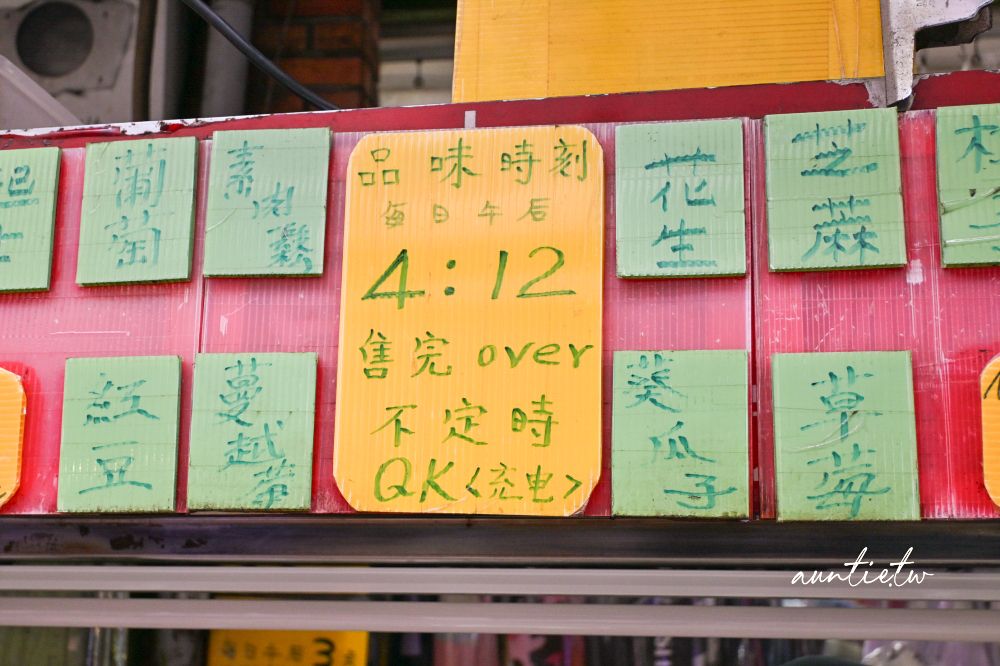 葡萄
素肉鬆
品味時刻
每日午后
4:12
售完over
不定時
QK<充电>
花生
芝麻
紅豆
蔓越莓
葵瓜子
草莓
auntie.tw